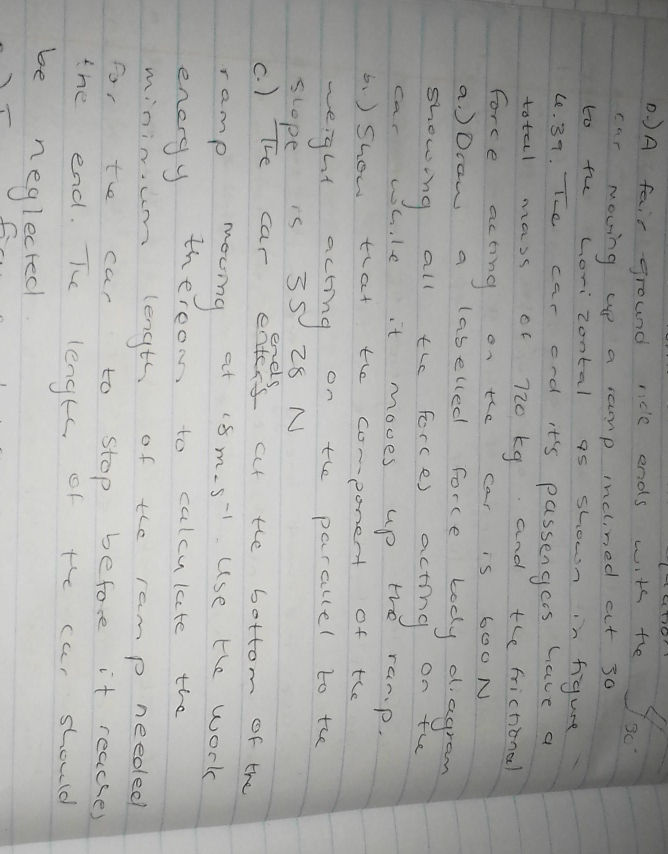 D.) A fair ground ride ends with the
car moving up a ramp inclined at 30
30°
to the horizontal as shown in figure
4.39. The car and it's passengers have a
total mass of 720 kg. and the frictional
force acting on the car is 600 N
a.) Draw a labelled force body diagram
showing all the forces acting on the
car while it moves up the ramp.
b.) Show that the component of the
weight acting on the parallel to the
slope is 3528 N
c.) The car enters at the bottom of the
ends
ramp moving at 18 m.s⁻¹. Use the work
energy thereom to calculate the
minimum length of the ramp needed
for the car to stop before it reaches
the end. The length of the car should
be neglected.